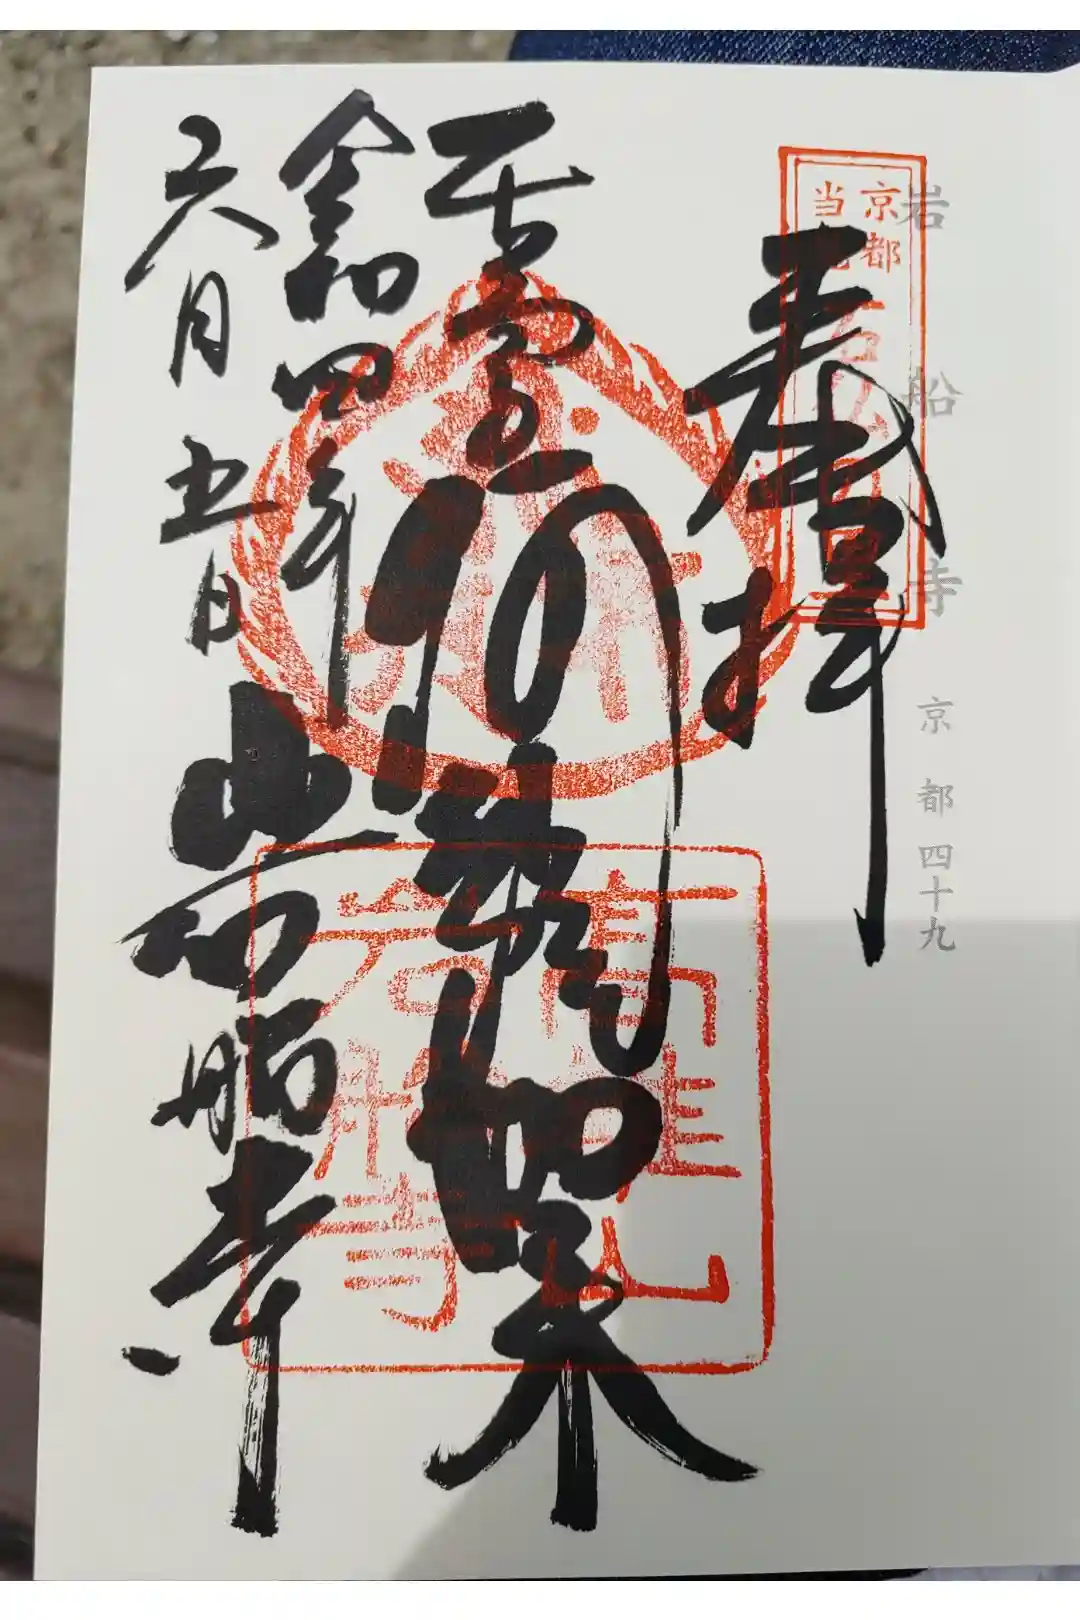 岩船寺 京都四十九
京都
当尾
奉拝
阿弥陀如来
令和四年
六月五日
岩船寺
高雄山
岩船寺